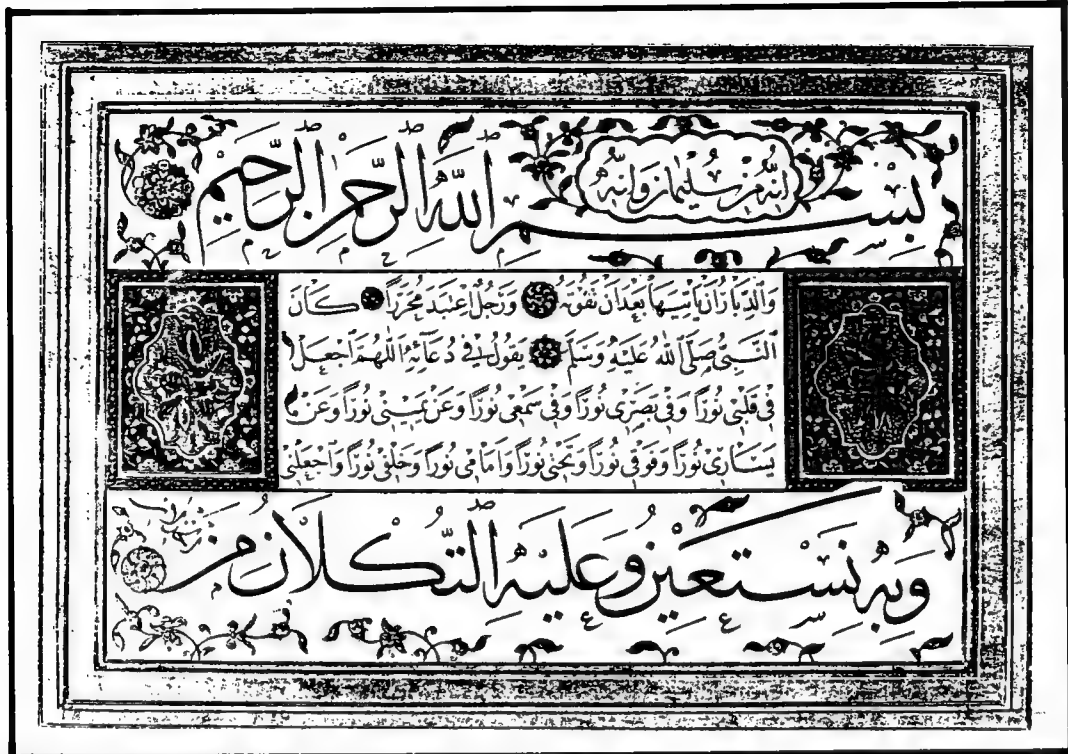 بِسْمِ اللهِ الرَّحْمٰنِ الرَّحِيمِ
اِنَّهُ مِنْ سُلَيْمَانَ وَاِنَّهُ
وَالدِّبَارُ اَنْ يَأْتِيَهَا بَعْدَ اَنْ تَفُوتَهُ وَرَجُلٌ اعْتَبَدَ مُحَرَّرًا كَانَ
النَّبِيُّ صَلَّى اللهُ عَلَيْهِ وَسَلَّمَ يَقُولُ فِي دُعَائِهِ اَللّٰهُمَّ اجْعَلْ
فِي قَلْبِي نُورًا وَفِي بَصَرِي نُورًا وَفِي سَمْعِي نُورًا وَعَنْ يَمِينِي نُورًا وَعَنْ
يَسَارِي نُورًا وَفَوْقِي نُورًا وَتَحْتِي نُورًا وَاَمَامِي نُورًا وَخَلْفِي نُورًا وَاجْعَلْنِي
وَبِهِ نَسْتَعِينُ وَعَلَيْهِ التُّكْلَانُ